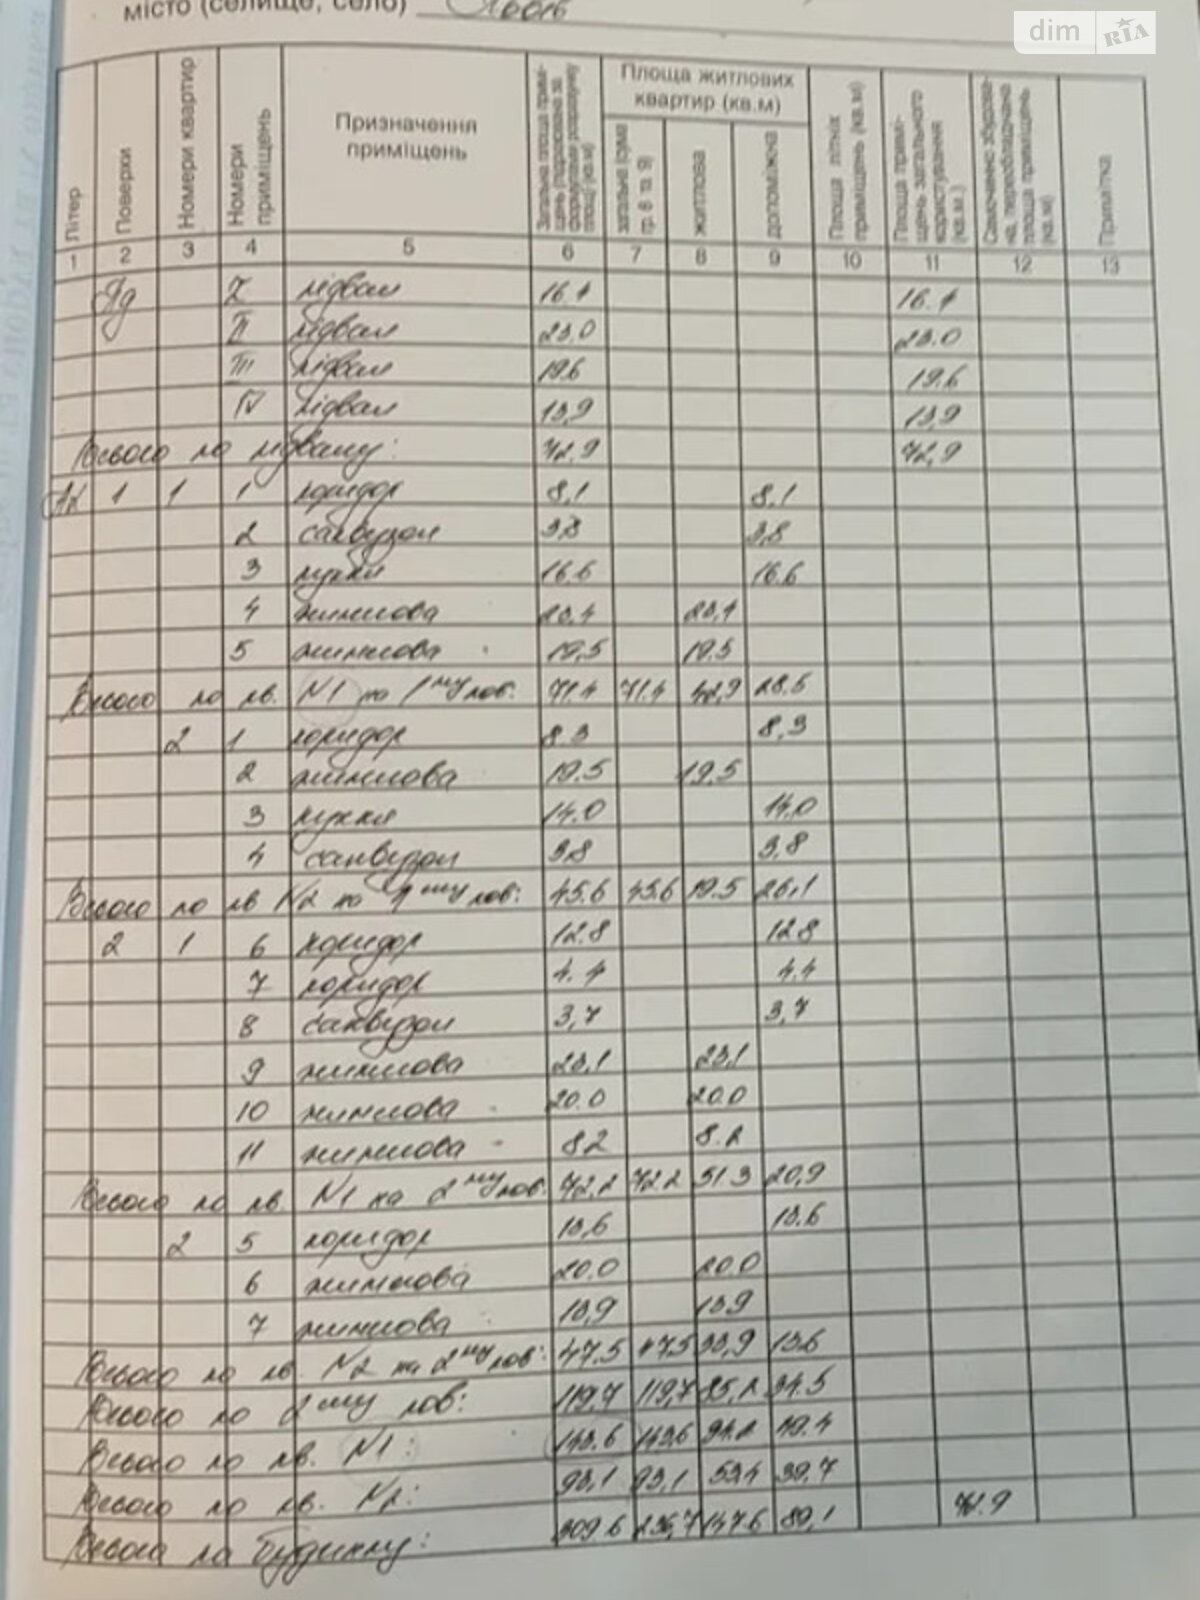 місто (селище, село) Львів
dim RIA
Літер | Поверхи | Номери квартир | Номери приміщень | Призначення приміщень | Загальна площа приміщень (підрахована за формулами розрахунку площ) (кв.м) | Площа житлових квартир (кв.м) | загальна (сума гр. 8 та 9) | житлова | допоміжна | Площа літніх приміщень (кв.м) | Площа приміщень загального користування (кв.м.) | Самочинно збудована, переобладнана площа приміщень (кв.м) | Примітка
1 2 3 4 5 6 7 8 9 10 11 12 13
Пд I підвал 16.4 16.4
II підвал 23.0 23.0
III підвал 19.6 19.6
IV підвал 13,9 13,9
Всього по підвалу: 72.9 72,9
1 1 1 коридор 8,1 8,1
2 санвузол 3,8 3,8
3 кухня 16.6 16.6
4 житлова 23,4 23,4
5 житлова 19,5 19.5
Всього по кв. N1 по 1му пов: 71.4 71.4 42,9 28.5
2 1 коридор 8.3 8,3
2 житлова 19.5 19.5
3 кухня 14.0 14.0
4 санвузол 3,8 3,8
Всього по кв N2 по 1му пов: 45.6 45.6 19.5 26,1
2 1 6 коридор 12.8 12.8
7 коридор 4.4 4.4
8 санвузол 3,7 3,7
9 житлова 23,1 23,1
10 житлова 20.0 20.0
11 житлова 8.2 8.2
Всього по кв. N1 на 2му пов: 72,2 72.2 51.3 20,9
2 5 коридор 13,6 13.6
6 житлова 20.0 20.0
7 житлова 13,9 13,9
Всього по кв. N2 на 2му пов: 47.5 47.5 33,9 13.6
Всього по 2му пов: 119.7 119,7 85,2 34.5
Всього по кв. N1: 143.6 143.6 94.2 49.4
Всього по кв. N2: 93,1 93,1 53,4 39.7
Всього по будинку: 309.6 236,7 147.6 89,1 72.9